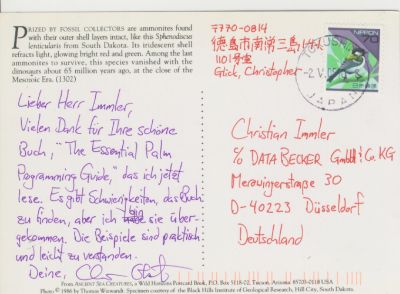 PRIZED BY FOSSIL COLLECTORS are ammonites found
with their outer shell layers intact, like this Sphenodiscus
lenticularis from South Dakota. Its iridescent shell
refracts light, glowing bright red and green. Among the last
ammonites to survive, this species vanished with the
dinosaurs about 65 million years ago, at the close of the
Mesozoic Era. (1302)
Lieber Herr Immler,
Vielen Dank für Ihre schöne
Buch, "The Essential Palm
Programming Guide," das ich jetzt
lese. Es gibt Schwierigkeiten, das Buch
zu finden, aber ich bin sie über-
gekommen. Die Beispiele sind praktisch
und leicht zu verstanden.
Deine,
From ANCIENT SEA CREATURES, a Wild Horizons Postcard Book, P.O. Box 5118-02, Tucson, Arizona 85703-0118 USA
Photo © 1986 by Thomas Wiewandt. Specimen courtesy of the Black Hills Institute of Geological Research, Hill City, South Dakota.
〒770-0814
徳島市南常三島1-41
1101号室
Glick, Christopher
NIPPON
70
TOKUSHIMA
-2.V.
JAPAN
Christian Immler
c/o DATA BECKER GmbH & Co. KG
Merowingerstraße 30
D-40223 Düsseldorf
Deutschland